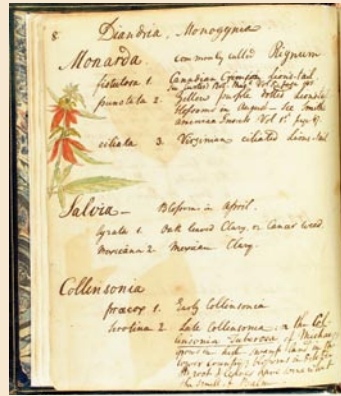 8 Diandria. Monogynia
Monarda commonly called Rignum
fistulosa 1. Canadian Crimson Lions-tail
See Curtis's Bot. Mag.
punctata 2. Yellow purple dotted Lionstail
blossoms in August – See Smith
American Insects Vol 1st. page
ciliata 3. Virginian ciliated Lions-tail
Salvia – Blossoms in April.
lyrata 1. Oak leaved Clary, or Cancer weed.
mexicana 2 Mexican Clary.
Collinsonia
præcox 1. Early Collinsonia
serotina 2. Late Collinsonia or the Col-
linsonia Tuberosa of Michaux
grows in rich swamp land in the
lower country, blossoms in
the root & leaves have somewhat
the smell of Balm